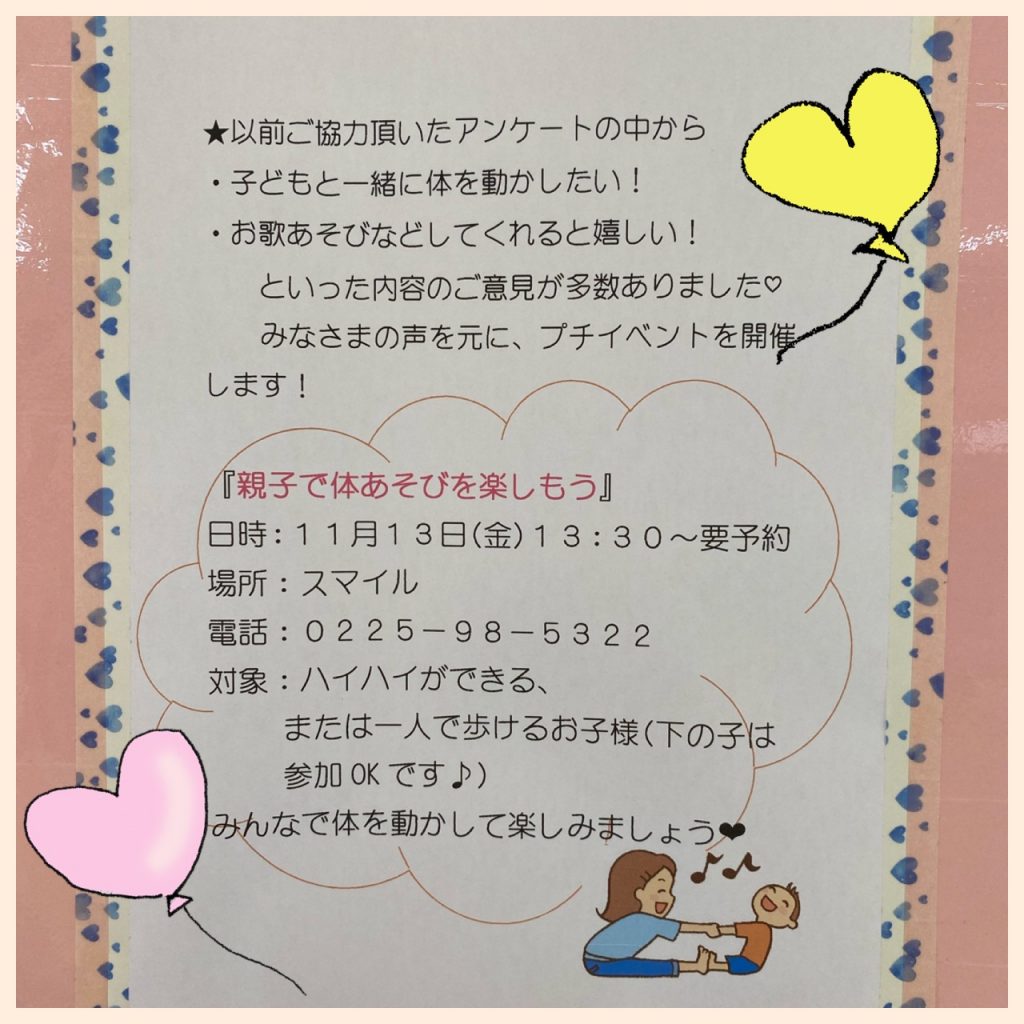 ★以前ご協力頂いたアンケートの中から
・子どもと一緒に体を動かしたい！
・お歌あそびなどしてくれると嬉しい！
といった内容のご意見が多数ありました♡
みなさまの声を元に、プチイベントを開催
します！
『親子で体あそびを楽しもう』
日時：１１月１３日(金)１３：３０～要予約
場所：スマイル
電話：０２２５－９８－５３２２
対象：ハイハイができる、
または一人で歩けるお子様(下の子は
参加OKです♪)
みんなで体を動かして楽しみましょう❤